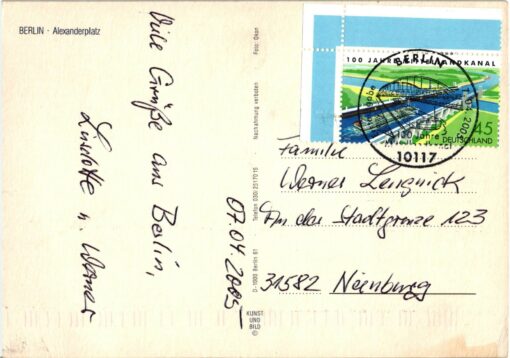 BERLIN · Alexanderplatz
Viele Grüße aus Berlin,
Liselotte u. Werner
07.04.2005
Foto: Dean
Nachahmung verboten
Telefon 030/2517015
D-1000 Berlin 61
KUNST
UND
BILD
©
100 JAHRE
LANDKANAL
45
DEUTSCHLAND
BERLIN
100 Jahre
10117
Familie
Werner Lengnick
An der Stadtgrenze 123
31582 Nienburg